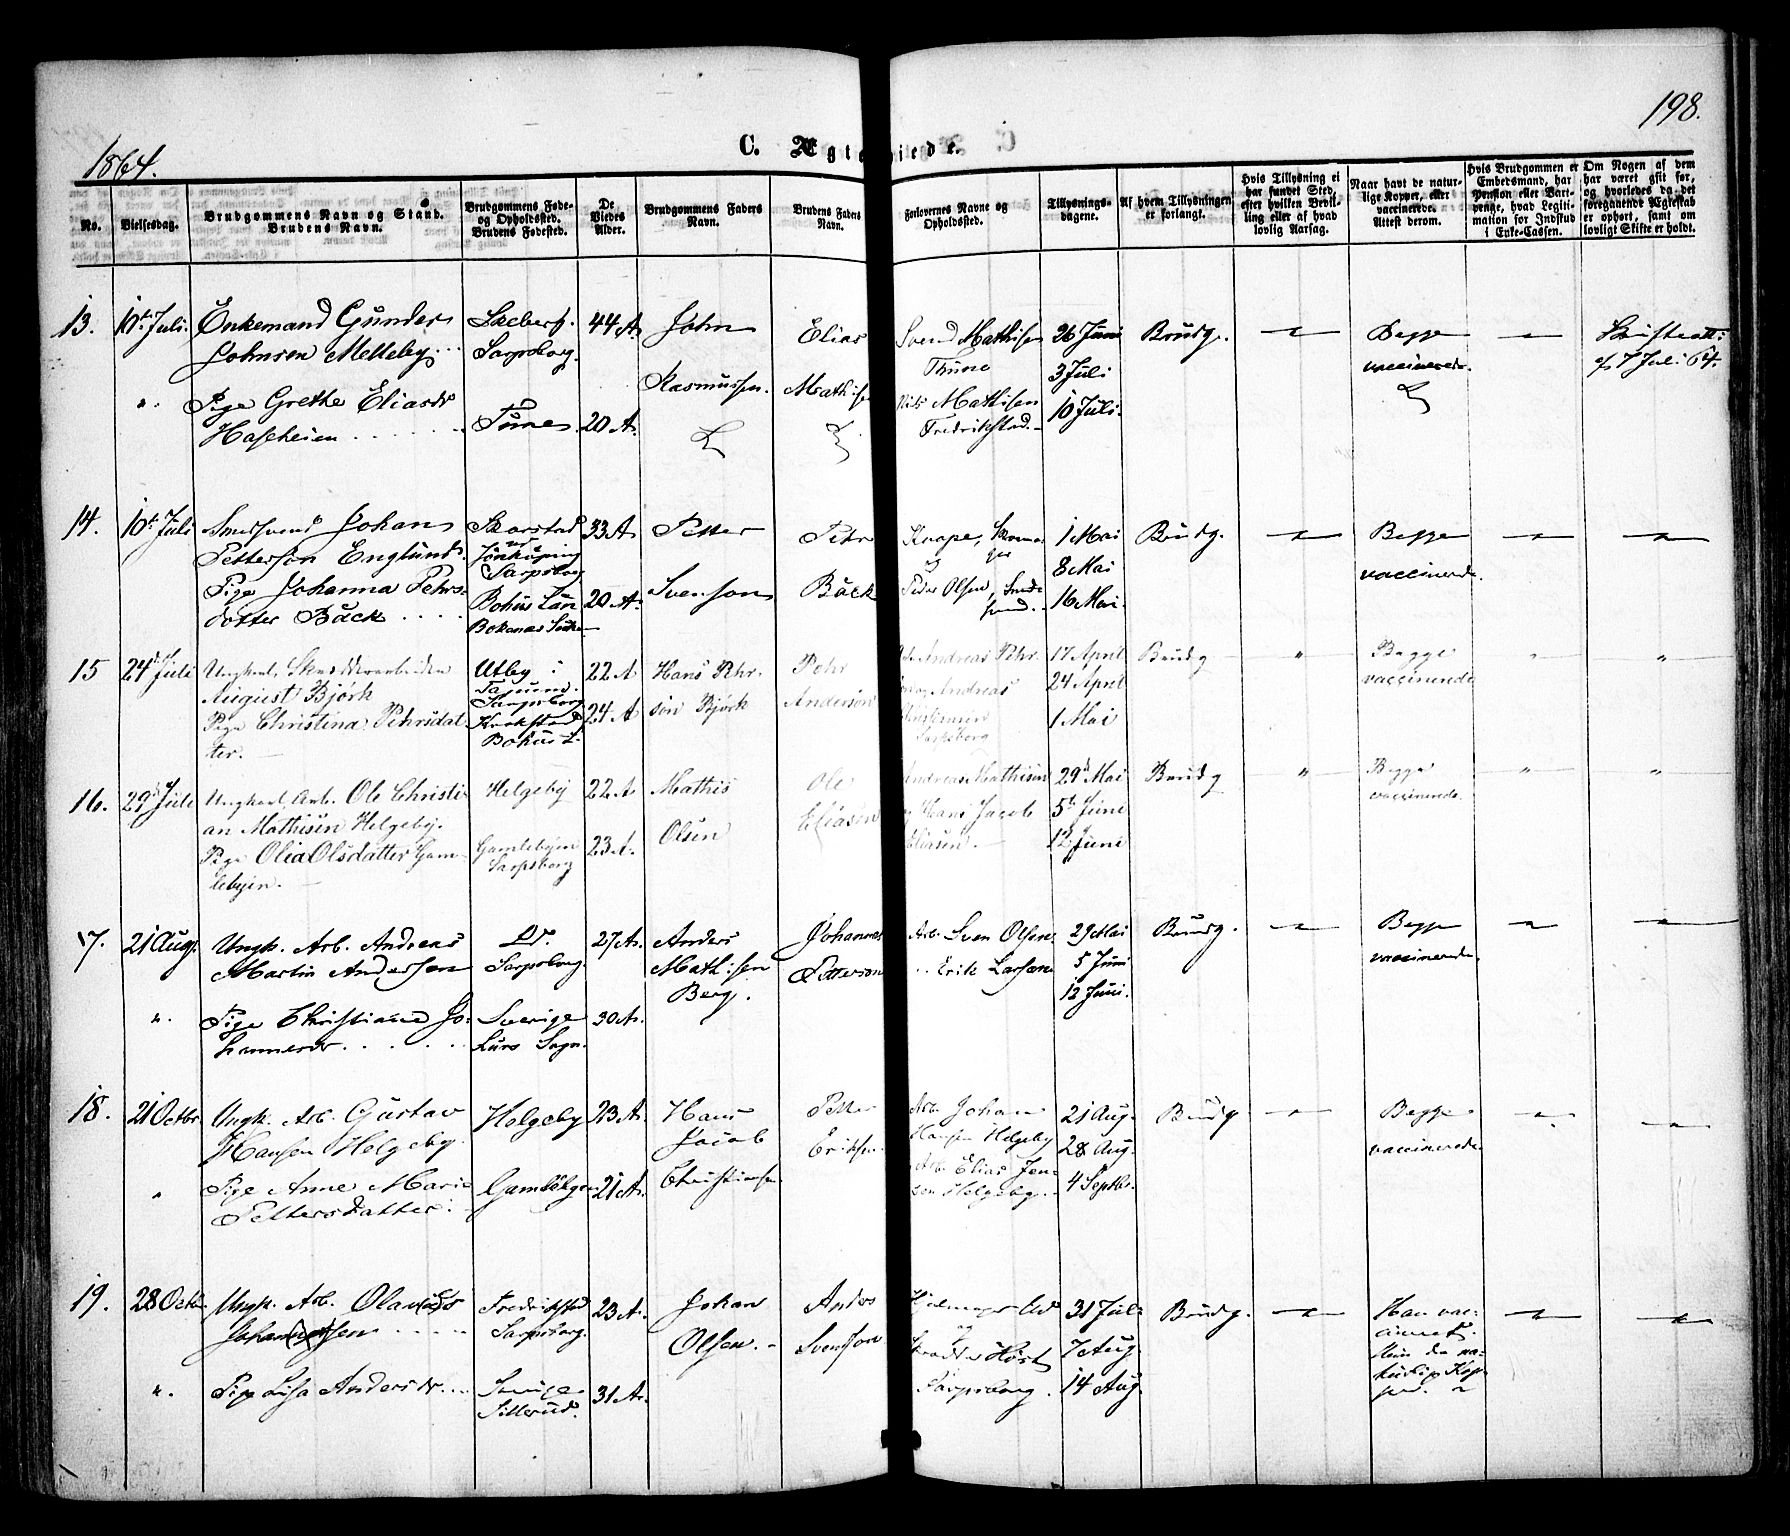 198.
1864.
C. Ægteviede.
No.
Vielsesdag.
Brudgommens Navn og Stand.
Brudens Navn.
Brudgommens Føde-
og Opholdssted.
Brudens Fødested.
De
Viedes
Alder.
Brudgommens Faders
Navn.
Brudens Faders
Navn.
Forlovernes Navne og
Opholdssted.
Tillysnings-
dagene.
Af hvem Tillysningen
er forlangt.
Hvis Tillysning ei
har fundet Sted,
efter hvilken Bevil-
ling eller af hvad
lovlig Aarsag.
Naar havt de natur-
lige Kopper, eller
vaccinerede.
Attest derom.
Hvis Brudgommen er
Embedsmand, har
Pension eller Vart-
penge, hvad Legiti-
mation for Indskud
i Enke-Cassen.
Om Nogen af dem
har været gift før,
og hvorledes da det
foregaaende Ægteskab
er ophørt, samt om
lovligt Skifte er holdt.
13.
10de Juli.
Enkemand Gunder
Johnsen Melleby
Skeberg.
Sarpsborg.
44 A.
John
Rasmussen.
Elias
Mathisen
Svend Mathisen
Thune
Nils Mathisen
Fredrikstad.
26 Juni
3 Juli
10 Juli.
Brudg.
Begge
vaccinerede.
af 7 Juli 64.
".
Pige Grethe Eliasdr
Hafeheien
Tune
20 A.
14.
10de Juli
Smedsvend Johan
Petterson Englund
Skarstad
ved
Jönköping
Sarpsborg
33 A
Petter
Svenson
Petr
Bäck
Knape, Skoma-
ger
og
Peder Olsen, Smede-
svend.
1 Mai
8 Mai
16 Mai.
Brudg.
Begge
vaccinerede.
Pige Johanna Pehrs-
dotter Bäck
Bohus Län
Bokenäs Sokn
20 A.
15
24de Juli
Ungkarl, Skradderarbeider
August Bjørk
Pige Christina Pehrsdat-
ter.
Utby i
Sarpsborg
Krokstad
Bohus L.
22 A
24 A
Hans Pehr-
són Bjørk
Pehr
Andersón
Andreas Pehr-
Andreas
Christensen
Sarpsborg
17 April
24 April
1 Mai
Brudg
"
Begge
vaccinerede
"
"
16.
29de Juli
Ungkarl, Arb. Ole Christi-
an Mathisen Helgeby.
Pige Olia Olsdatter Gam-
lebyen.
Helgeby
Gamlebyen
Sarpsborg
22 A
23 A.
Mathis
Olsen
Ole
Eliasen
Andreas Mathisen
Hans Jacob
Eliasen.
29de Mai
5te Juni
12te Juni
Brudg
"
Begge
vaccinerede.
"
"
17.
21 Aug.
Ungk. Arb. Andreas
Martin Andersen
Sarpsborg.
27 A.
Anders
Mathisen
Berg.
Johannes
Petterson
Arb. Sven Olsen
" Erik Larsen
29 Mai
5 Juni
12 Juni.
Brudg.
Begge
vaccinerede.
".
Pige Christiane Jo-
hannesdr
Sverige
Lurs Sogn.
30 A.
18.
21 Octbr.
Ungk. Arb. Gustav
Hansen Helgeby.
Helgeby
23 A.
Hans
Jacob
Christiansen
Petter
Eriksen
Arb. Johan
Hansen Helgeby
Arb. Elias Jen-
sen Helgeby.
21 Aug.
28 Aug.
4 Septbr.
Brudg.
Begge
vaccinerede.
"
Pige Anne Marie
Pettersdatter
Gamlebyen
21 A.
19.
28 Octbr.
Ungk. Arb. Olavus
Johannesen
Fredrikstad
Sarpsborg.
23 A.
Johan
Olsen.
Anders
Svenson
og
Høst
Sarpsborg.
31 Juli
7 Aug.
14 Aug.
Brudg.
Han vac-
cineret.
Hun de na-
turlige Kop-
per.
".
Pige Lisa Andersdr
Sverige
Sillerud.
31 A.